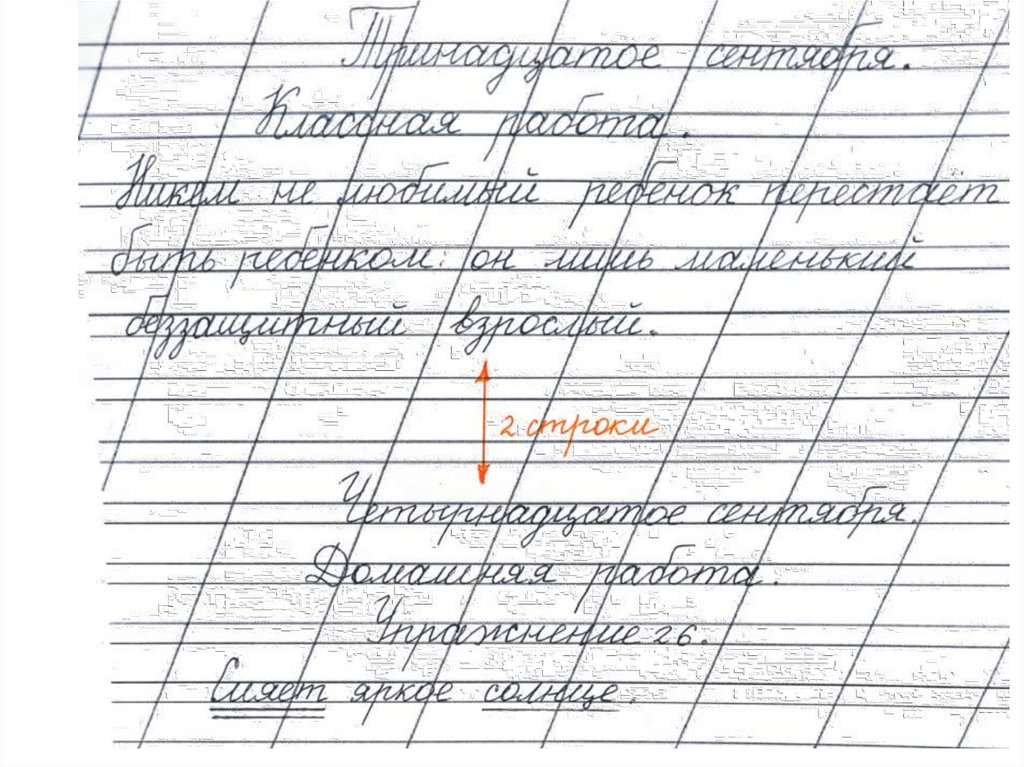 Тринадцатое сентября.
Классная работа.
Никем не любимый ребенок перестаёт
быть ребенком: он лишь маленький
беззащитный взрослый.
2 строки
Четырнадцатое сентября.
Домашняя работа.
Упражнение 26.
Сияет яркое солнце.